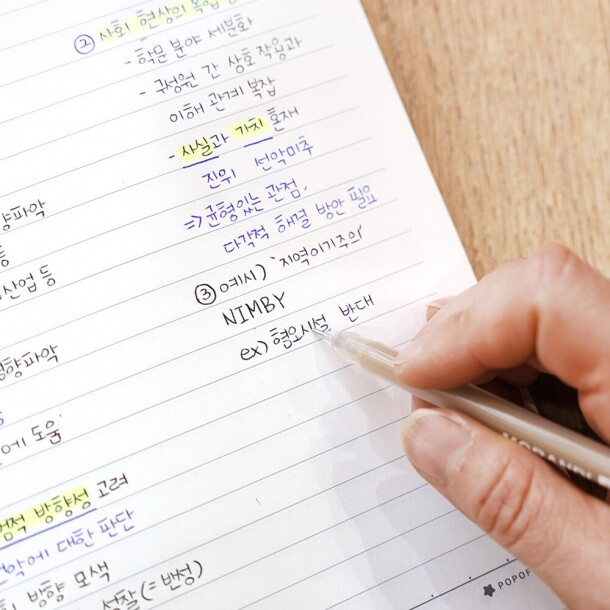 ② 사회 현상의 복잡성
- 학문 분야 세분화
- 구성원 간 상호 작용과
이해 관계 복잡
- 사실과 가치 혼재
진위 선악미추
⇒ 균형있는 관점,
다각적 해결 방안 필요
③ 예시) '지역이기주의'
NIMBY
ex) 혐오시설 반대
향파악
등
산업 등
향파악
에 도움
방향성 고려
악에 대한 판단
방향 모색
성찰(=반성)
MORANDI
POPOF